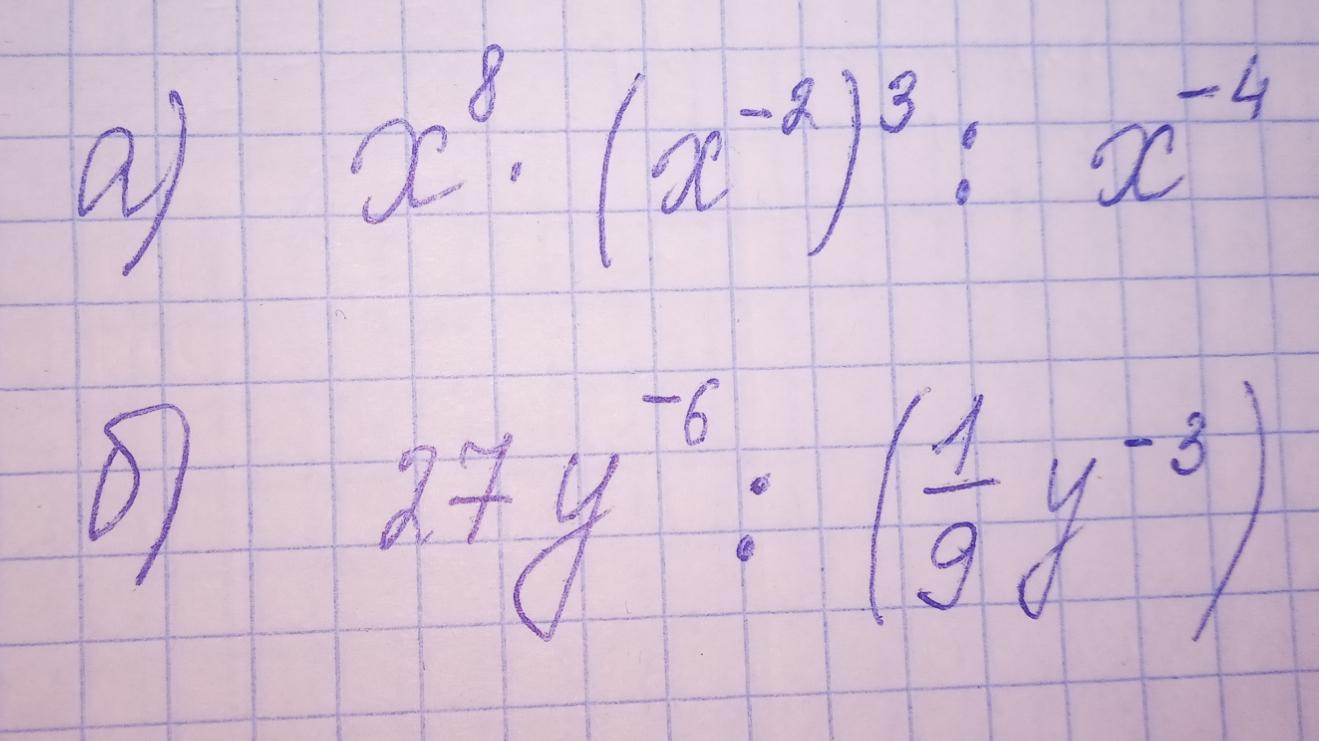 а) x⁸ · (x⁻²)³ : x⁻⁴
б) 27y⁻⁶ : (1/9 y⁻³)